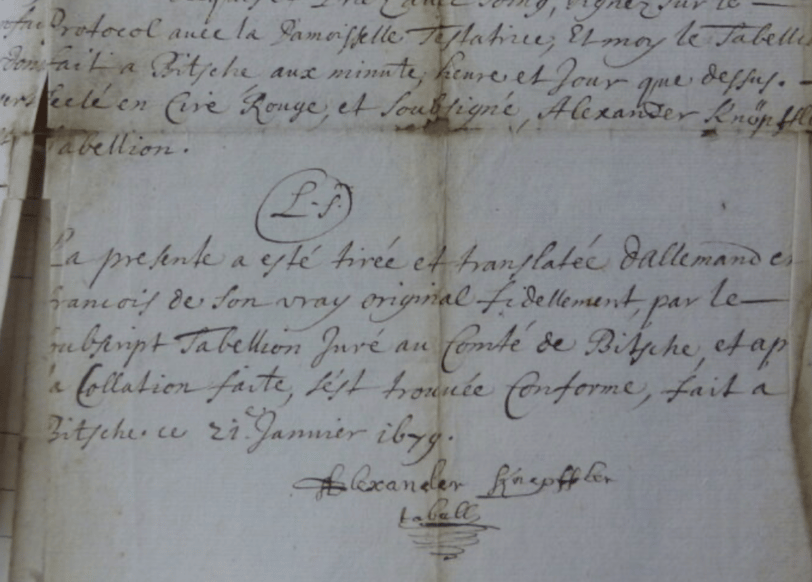 signez sur le
Protocol avec la Damoiselle Testatrice, Et moy le Tabelli
fait a Bitsche aux minute, heure et Jour que dessus.
seelé en Cire Rouge, et soubsigné, Alexander Knöpffle
Tabellion.
L.S.
La presente a esté tirée et translatée d'allemand en
francois de son vray original fidellement, par le
subscript Tabellion Juré au Comté de Bitsche, et ap
la Collation faite, s'est trouvée Conforme, fait a
Bitsche. ce 21e. Janvier 1679.
Alexander Knepffler
tabell